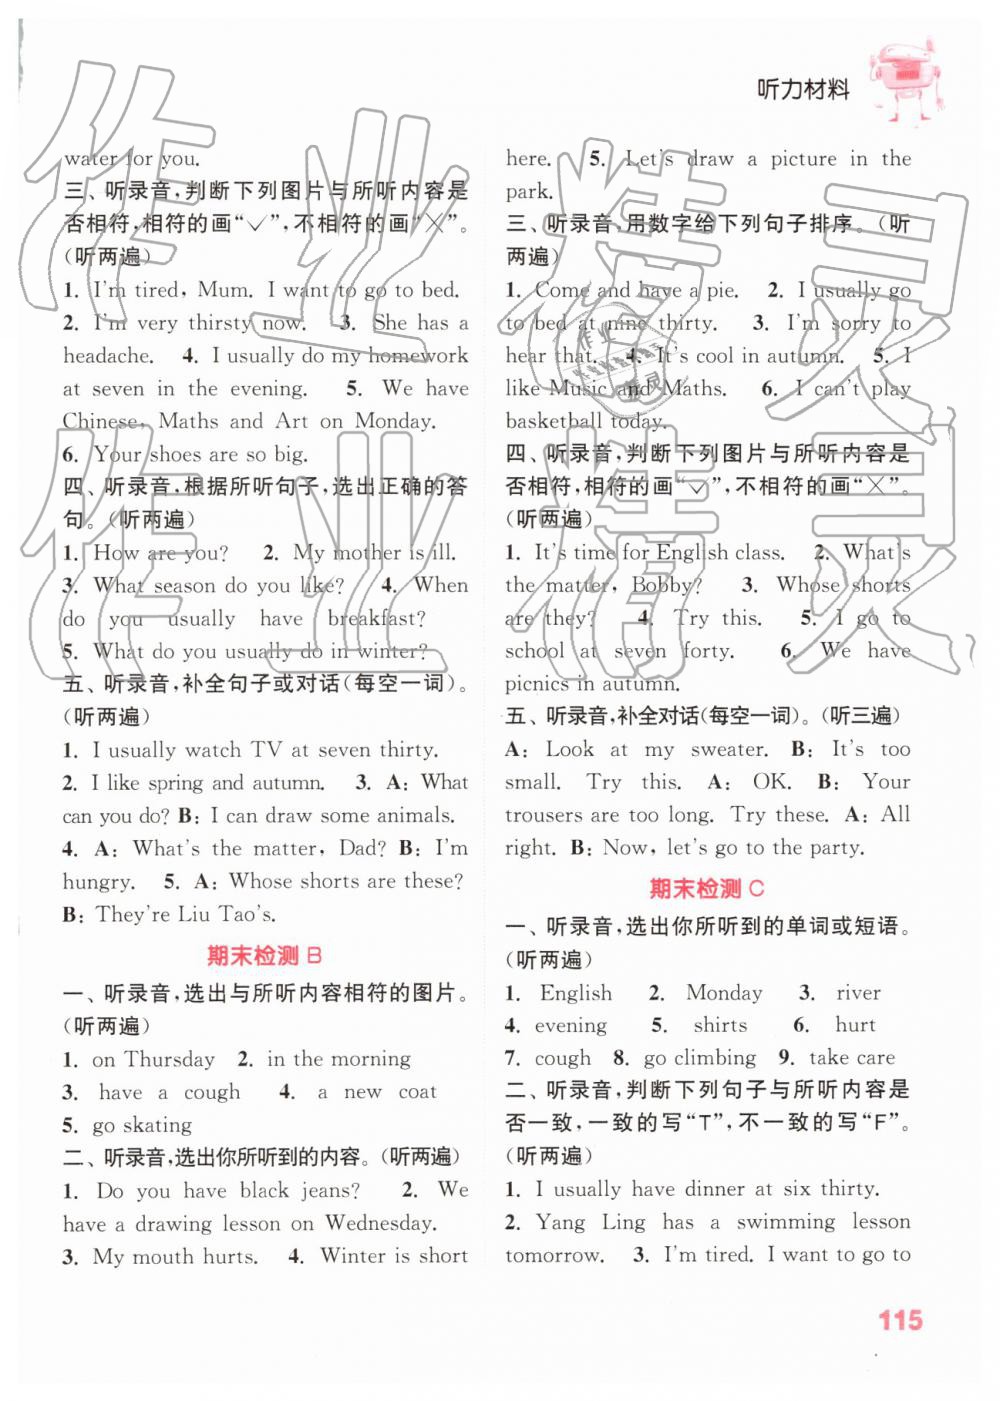 听力材料
water for you.
三、听录音,判断下列图片与所听内容是
否相符,相符的画“√”,不相符的画“×”。
(听两遍)
1. I'm tired, Mum. I want to go to bed.
2. I'm very thirsty now. 3. She has a
headache. 4. I usually do my homework
at seven in the evening. 5. We have
Chinese, Maths and Art on Monday.
6. Your shoes are so big.
四、听录音,根据所听句子,选出正确的答
句。(听两遍)
1. How are you? 2. My mother is ill.
3. What season do you like? 4. When
do you usually have breakfast?
5. What do you usually do in winter?
五、听录音,补全句子或对话(每空一词)。
(听两遍)
1. I usually watch TV at seven thirty.
2. I like spring and autumn. 3. A: What
can you do? B: I can draw some animals.
4. A: What's the matter, Dad? B: I'm
hungry. 5. A: Whose shorts are these?
B: They're Liu Tao's.
期末检测 B
一、听录音,选出与所听内容相符的图片。
(听两遍)
1. on Thursday 2. in the morning
3. have a cough 4. a new coat
5. go skating
二、听录音,选出你所听到的内容。(听两遍)
1. Do you have black jeans? 2. We
have a drawing lesson on Wednesday.
3. My mouth hurts. 4. Winter is short
here. 5. Let's draw a picture in the
park.
三、听录音,用数字给下列句子排序。(听
两遍)
1. Come and have a pie. 2. I usually go
to bed at nine thirty. 3. I'm sorry to
hear that. 4. It's cool in autumn. 5. I
like Music and Maths. 6. I can't play
basketball today.
四、听录音,判断下列图片与所听内容是
否相符,相符的画“√”,不相符的画“×”。
(听两遍)
1. It's time for English class. 2. What's
the matter, Bobby? 3. Whose shorts
are they? 4. Try this. 5. I go to
school at seven forty. 6. We have
picnics in autumn.
五、听录音,补全对话(每空一词)。(听三遍)
A: Look at my sweater. B: It's too
small. Try this. A: OK. B: Your
trousers are too long. Try these. A: All
right. B: Now, let's go to the party.
期末检测 C
一、听录音,选出你所听到的单词或短语。
(听两遍)
1. English 2. Monday 3. river
4. evening 5. shirts 6. hurt
7. cough 8. go climbing 9. take care
二、听录音,判断下列句子与所听内容是
否一致,一致的写“T”,不一致的写“F”。
(听两遍)
1. I usually have dinner at six thirty.
2. Yang Ling has a swimming lesson
tomorrow. 3. I'm tired. I want to go to
115
作业精灵
作业精灵
作业精灵